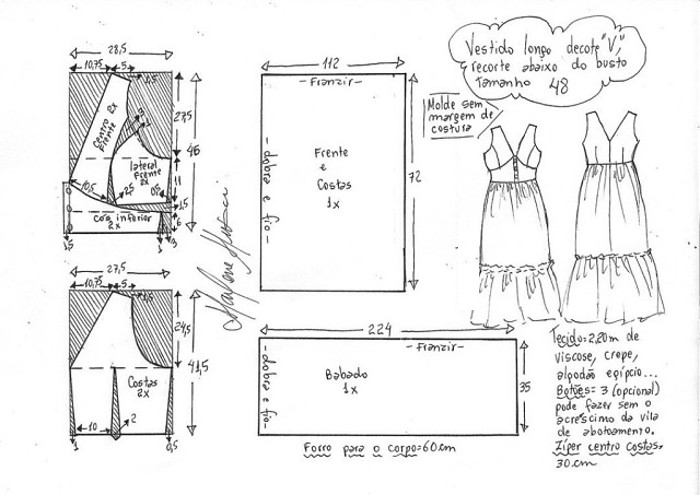 Vestido longo decote "V",
recorte abaixo do busto
Tamanho 48
Molde sem
margem de
costura
28,5
10,75
5
1,5
27,5
46
Centro
frente 2x
3
lateral
frente
2x
11
10,5
2,5
0,5
1,5
6
cos inferior
2x
1,5
1
3
27,5
10,75
5
1,5
24,5
41,5
Costas
2x
10
2
1
0,5
Marlene Mukai
112
- Franzir -
- dobra e fio -
Frente
e
Costas
1x
72
224
- Franzir -
- dobra e fio -
Babado
1x
35
Forro para o corpo=60cm
Tecido=2,20m de
viscose, crepe,
algodão egípcio...
Botões= 3 (opcional)
pode fazer sem o
acréscimo da vila
de abotoamento.
Zíper centro costas=
30.cm